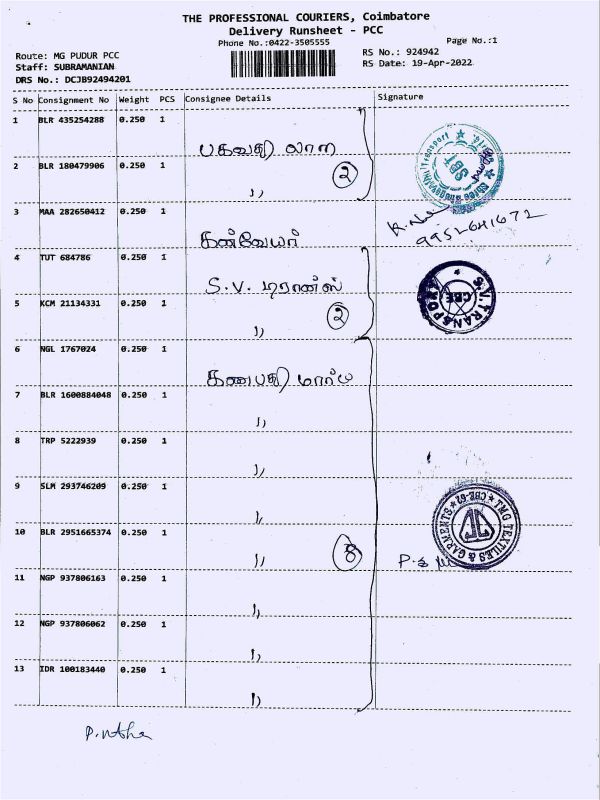 THE PROFESSIONAL COURIERS, Coimbatore
Delivery Runsheet - PCC
Phone No.:0422-3505555
Page No.:1
Route: MG PUDUR PCC
Staff: SUBRAMANIAN
DRS No.: DCJB92494201
RS No.: 924942
RS Date: 19-Apr-2022
S No Consignment No Weight PCS Consignee Details Signature
1 BLR 435254288 0.250 1
பகவதி
2 BLR 180479906 0.250 1
2
〃
3 MAA 282650412 0.250 1
கன்வேயர்
9952641672
4 TUT 684786 0.250 1
S.V. டிரான்ஸ்
S.V.TRANSPORT
CBE
5 KCM 21134331 0.250 1
2
〃
6 NGL 1767024 0.250 1
கணபதி மார்ட்
7 BLR 1600884048 0.250 1
〃
8 TRP 5222939 0.250 1
〃
9 SLM 293746209 0.250 1
〃
TMG TEXTILES & GARMENTS
CBE-62
10 BLR 2951665374 0.250 1
8
〃
11 NGP 937806163 0.250 1
〃
12 NGP 937806062 0.250 1
〃
13 IDR 100183440 0.250 1
〃